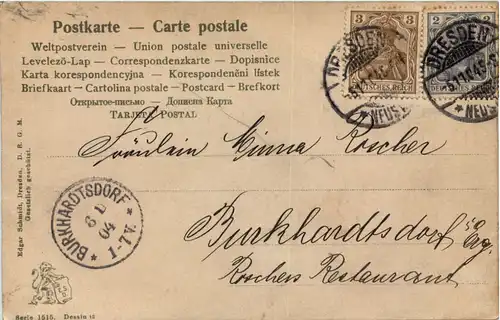 Postkarte — Carte postale
Weltpostverein — Union postale universelle
Levelező-Lap — Correspondenzkarte — Dopisnice
Karta korespondencyjna — Korespondenční lístek
Briefkaart — Cartolina postale — Postcard — Brefkort
Открытое-письмо — Дописна Карта
TARJETA POSTAL
3 3
DEUTSCHES REICH
2
DRESDEN
NEUST
DRESDEN
NEUST
Fräulein Minna Roscher
BURKHARDTSDORF
6 D
04
1-7V.
Burkhardtsdorf Erg.
Roschers Restaurant
Edgar Schmidt, Dresden, D. R. G. M.
Gesetzlich geschützt.
Serie 1515. Dessin